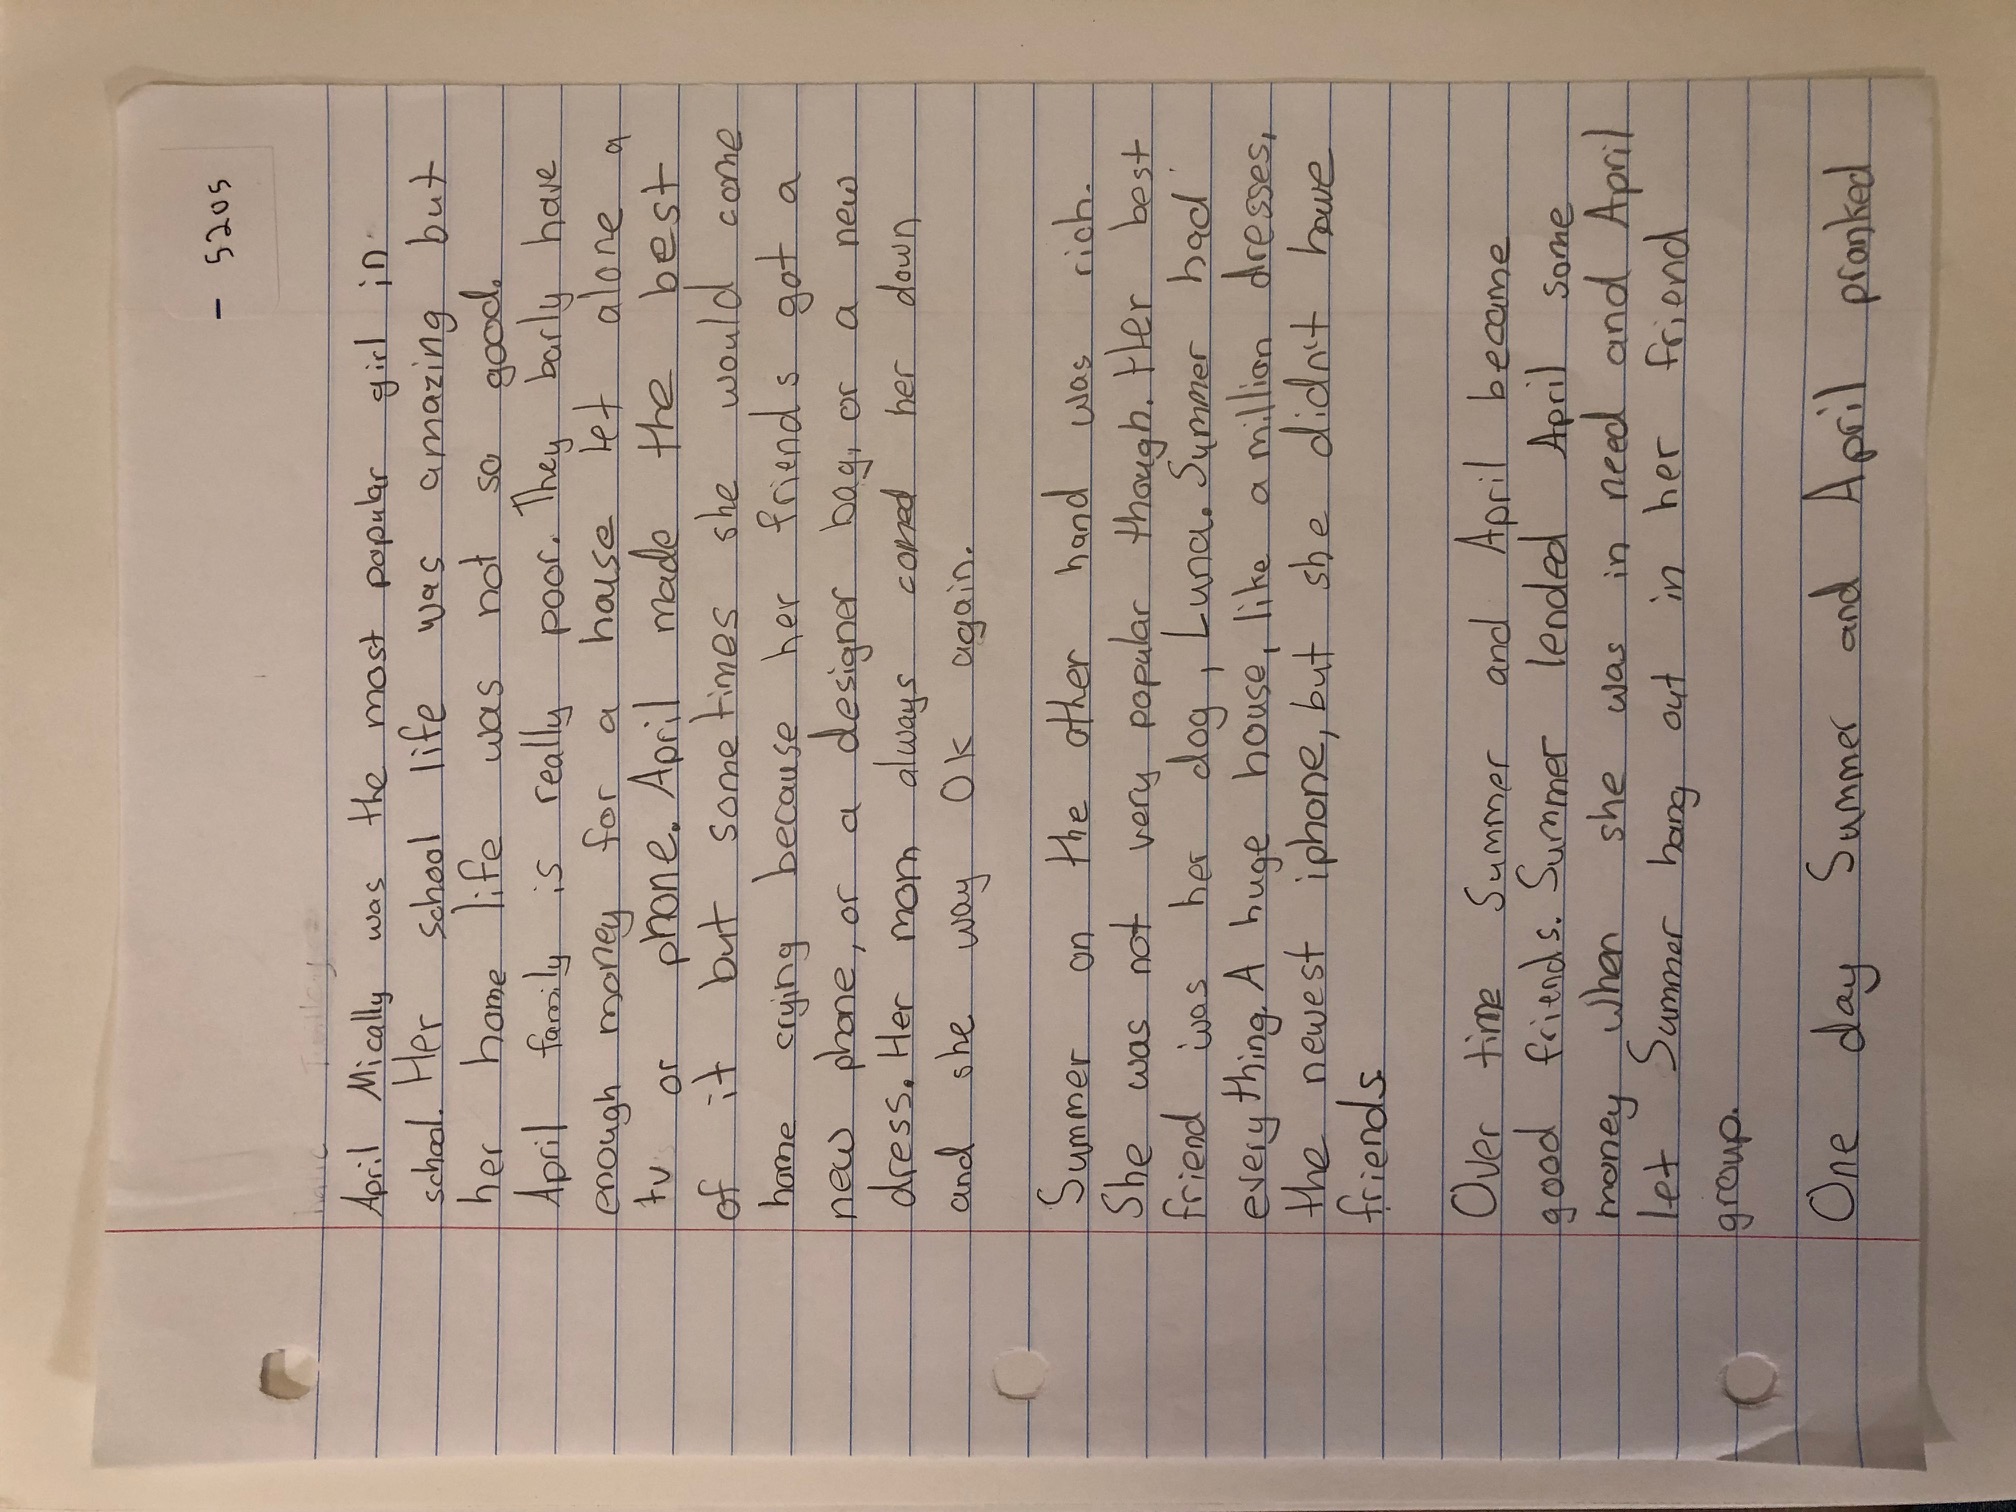 - 5205
April Mically was the most popular girl in
school. Her school life was amazing but
her home life was not so good.
April family is really poor. They barly have
enough money for a house let alone a
tv or phone. April made the best
of it but sometimes she would come
home crying because her friends got a
new phone, or a designer bag, or a new
dress. Her mom always comed her down
and she way OK again.
Summer on the other hand was rich.
She was not very popular though. Her best
friend was her dog, Luna. Summer had
everything. A huge house, like a million dresses,
the newest iphone, but she didn't have
friends
Over time Summer and April became
good friends. Summer lended April some
money when she was in need and April
let Summer hang out in her friend
group.
One day Summer and April pranked